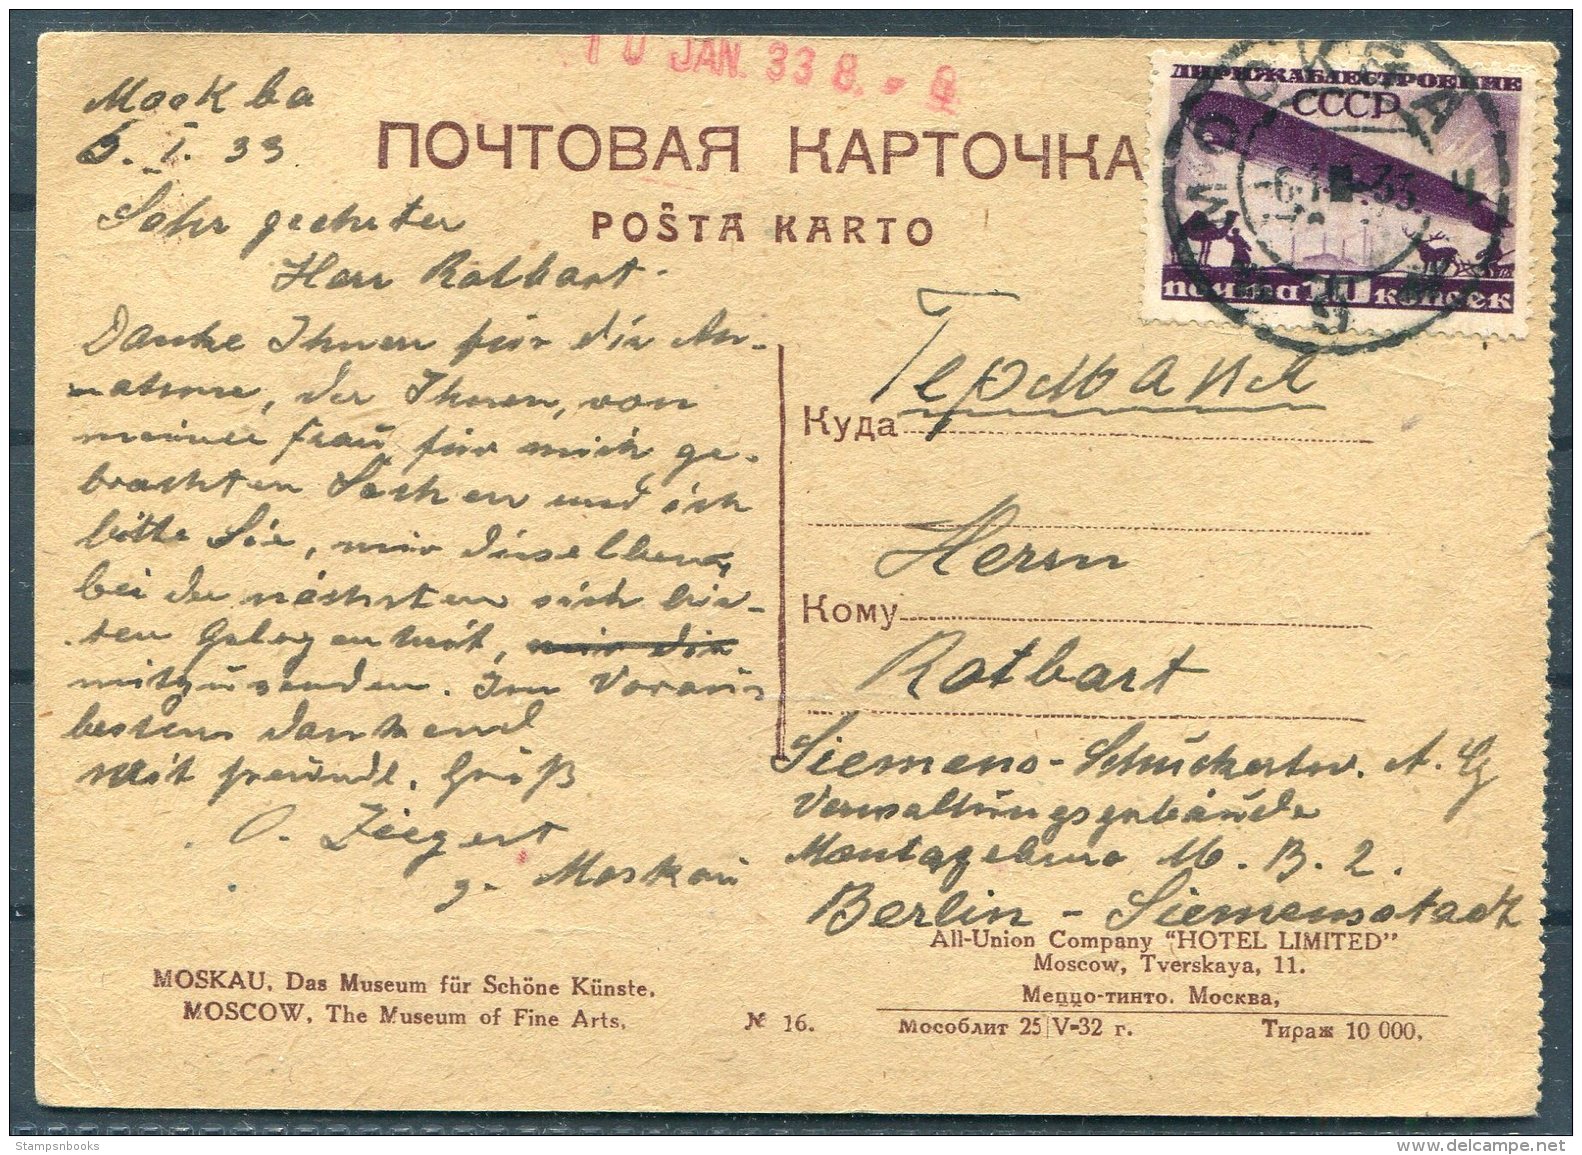 10 JAN. 33 8. - 9
Moskba
6. I. 33
Sehr geehrter
Herr Rotbart
ПОЧТОВАЯ КАРТОЧКА
POŜTA KARTO
ДИРИЖАБЛЕСТРОЕНИЕ
СССР
почта 10 копеек
МОСКВА
Danke Ihnen für die An-
nahme, der Ihnen, von
meiner Frau für mich ge-
brachten Sachen und ich
bitte Sie, mir dieselben,
bei der nächsten sich bie-
ten Gelegenheit, mir die
mitzusenden. Im Voraus
bestens dankend
Mit freundl. Gruß
O. Ziegert
z. Moskau
Германия
Куда
Herrn
Кому
Rotbart
Siemens-Schuckertw. A. G
Verwaltungsgebäude
Montagebüro M. B. 2.
Berlin - Siemensstadt
All-Union Company "HOTEL LIMITED"
Moscow, Tverskaya, 11.
Меццо-тинто. Москва,
Мособлит 25/V-32 г. Тираж 10 000.
MOSKAU. Das Museum für Schöne Künste.
MOSCOW. The Museum of Fine Arts.
№ 16.
Stampsnbooks
delcampe.net